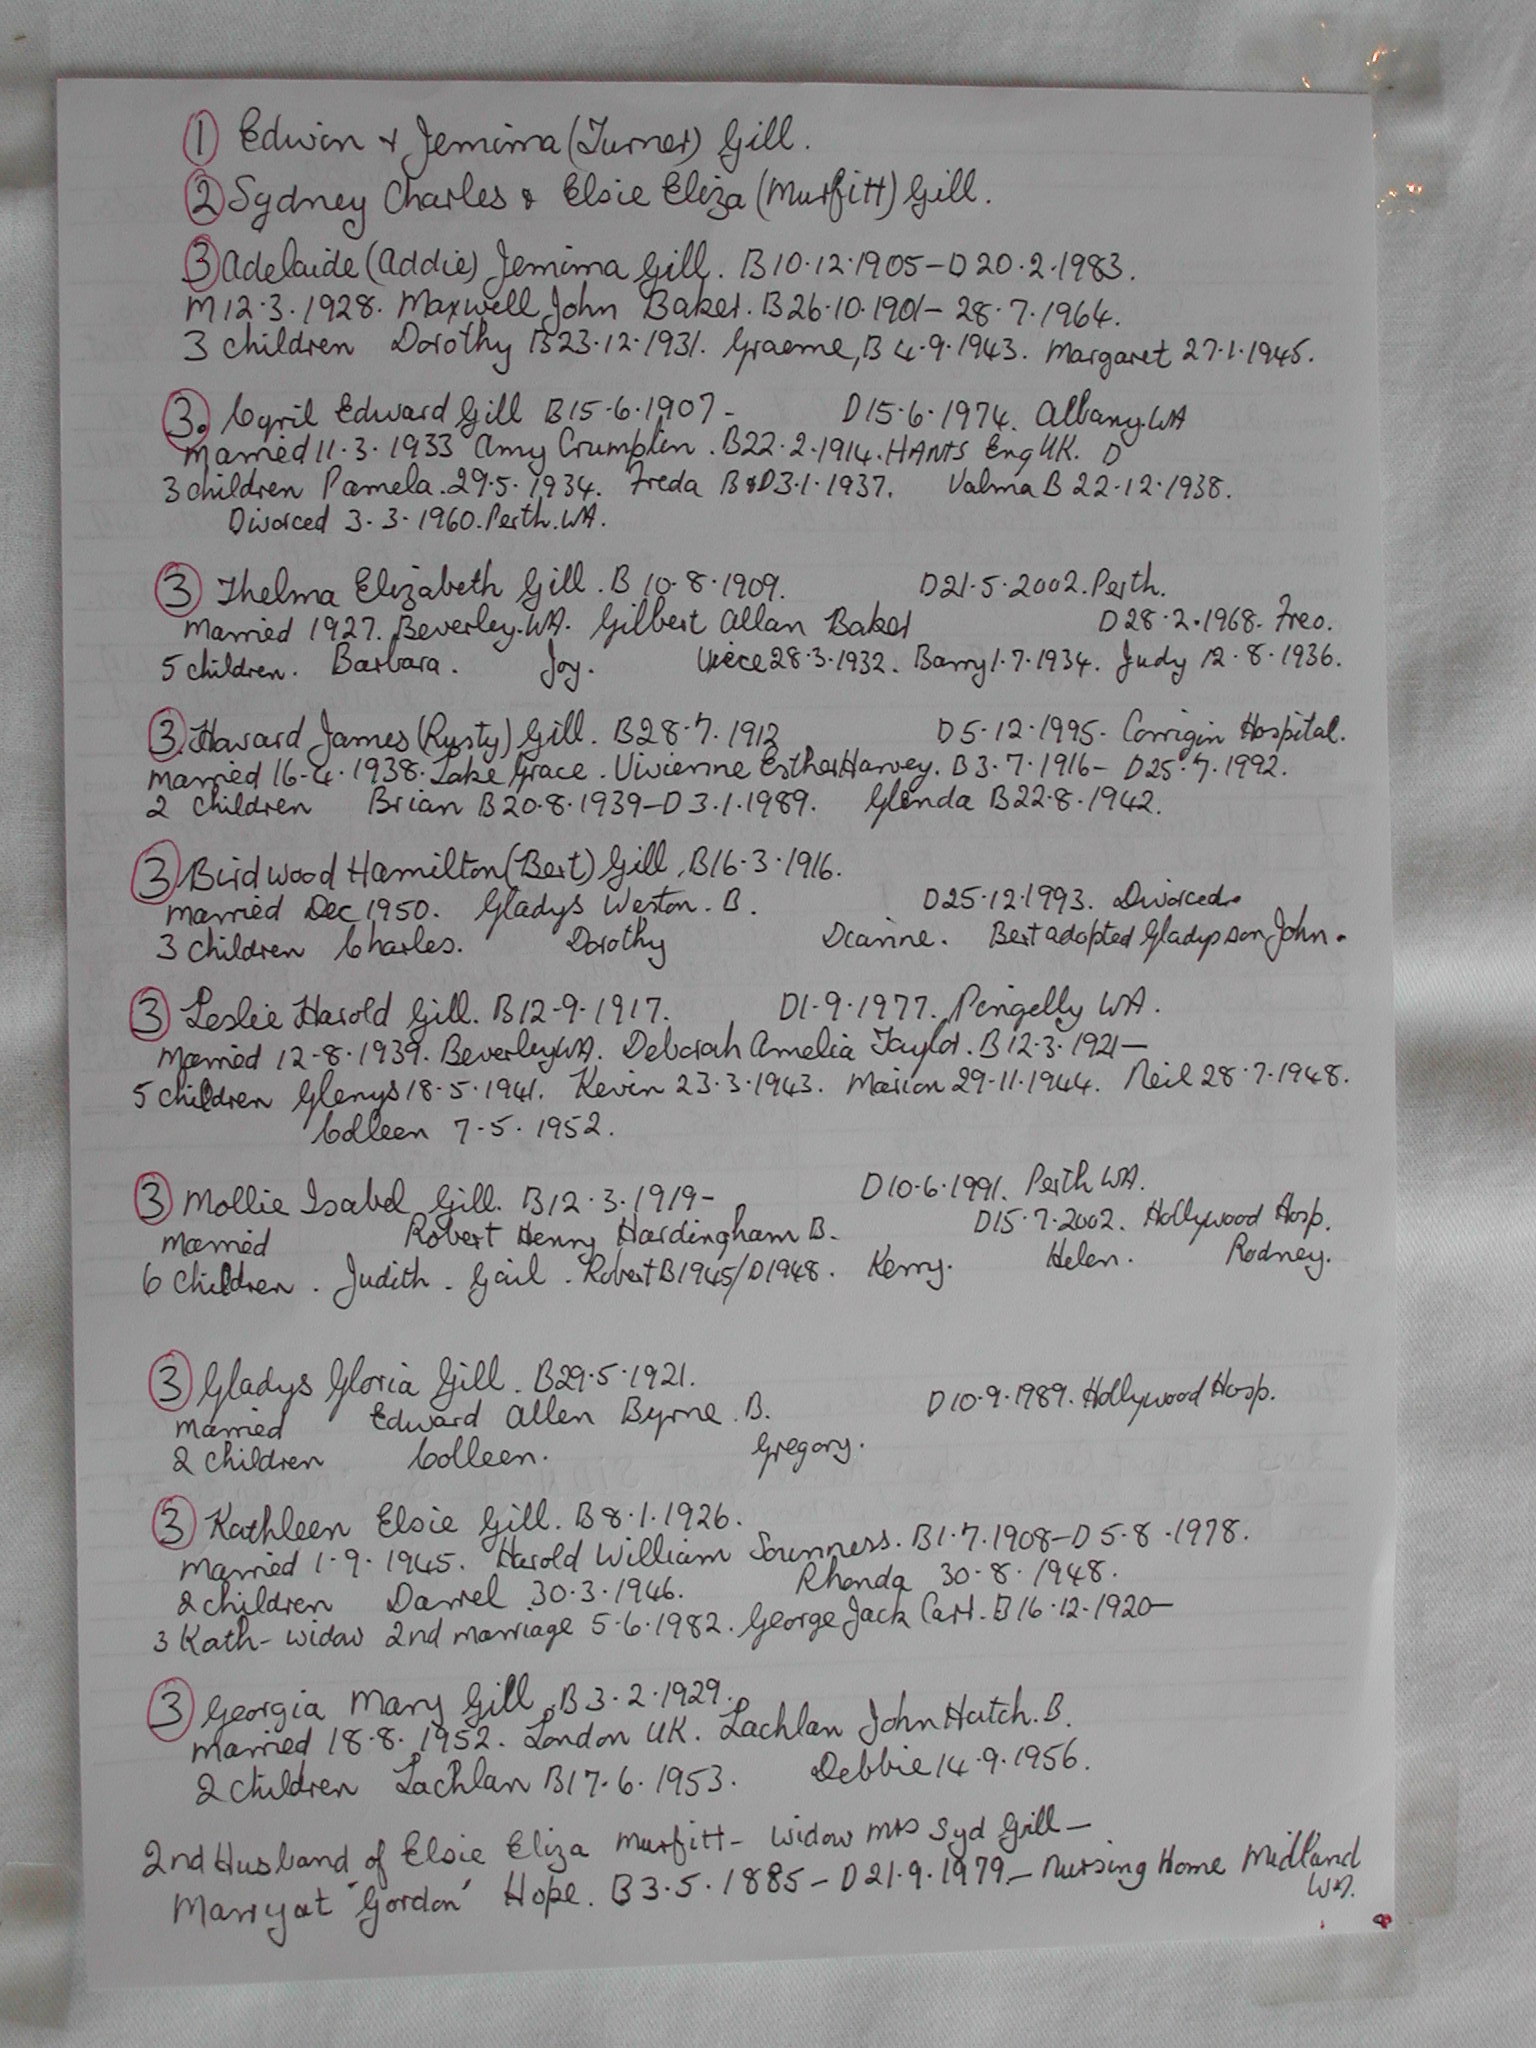 ① Edwin & Jemima (Turner) Gill.
② Sydney Charles & Elsie Eliza (Murfitt) Gill.
③ Adelaide (Addie) Jemima Gill. B 10.12.1905 – D 20.2.1983.
M 12.3.1928. Maxwell John Baker. B 26.10.1901 – 28.7.1964.
3 children Dorothy B 23.12.1931. Graeme, B 4.9.1943. Margaret 27.1.1945.
③. Cyril Edward Gill B 15.6.1907 - D 15.6.1974. Albany. WA
married 11.3.1933 Amy Crumplin. B 22.2.1914. HANTS Eng UK. D
3 children Pamela. 29.5.1934. Freda B & D 3.1.1937. Valma B 22.12.1938.
Divorced 3.3.1960. Perth. WA.
③ Thelma Elizabeth Gill. B 10.8.1909. D 21.5.2002. Perth.
married 1927. Beverley. WA. Gilbert Allan Baker D 28.2.1968. Freo.
5 children. Barbara. Joy. 28.3.1932. Barry 1.7.1934. Judy 12.8.1936.
③ Howard James (Rusty) Gill. B 28.7.1912 D 5.12.1995 - Corrigin Hospital.
married 16-4.1938. Lake Grace. Vivienne Esther Harvey. B 3.7.1916 – D 25.7.1992.
2 children Brian B 20.8.1939 – D 3.1.1989. Glenda B 22.8.1942.
③ Birdwood Hamilton (Bert) Gill. B 16.3.1916.
married Dec 1950. Gladys Weston. B. D 25.12.1993. Divorced.
3 children Charles. Dorothy Dianne. Bert adopted Gladys son John.
③ Leslie Harold Gill. B 12-9.1917. D 1.9.1977. Pingelly WA.
married 12-8.1939. Beverley WA. Deborah Amelia Taylor. B 12.3.1921 —
5 children Glenys 18.5.1941. Kevin 23.3.1943. Marion 29.11.1944. Neil 28.7.1948.
Colleen 7-5.1952.
③ Mollie Isabel Gill. B 12.3.1919 - D 10.6.1991. Perth WA.
married Robert Henry Hardingham B. D 15.7.2002. Hollywood Hosp.
6 children. Judith. Gail. Robert B 1945/D 1948. Kerry. Helen. Rodney.
③ Gladys Gloria Gill. B 29.5.1921.
married Edward Allen Byrne. B. D 10.9.1989. Hollywood Hosp.
2 children Colleen. Gregory.
③ Kathleen Elsie Gill. B 8.1.1926.
married 1.9.1945. Harold William Sounness. B 1.7.1908 – D 5.8.1978.
2 children Darrel 30.3.1946. Rhonda 30.8.1948.
3 Kath - widow 2nd marriage 5.6.1982. George Jack Carr. B 16.12.1920 —
③ Georgia Mary Gill. B 3.2.1929.
married 18.8.1952. London UK. Lachlan John Hatch. B.
2 children Lachlan B 17.6.1953. Debbie 14.9.1956.
2nd Husband of Elsie Eliza Murfitt – widow Mrs Syd Gill —
Marryat 'Gordon' Hope. B 3.5.1885 – D 21.9.1979 – Nursing Home Midland
WA.